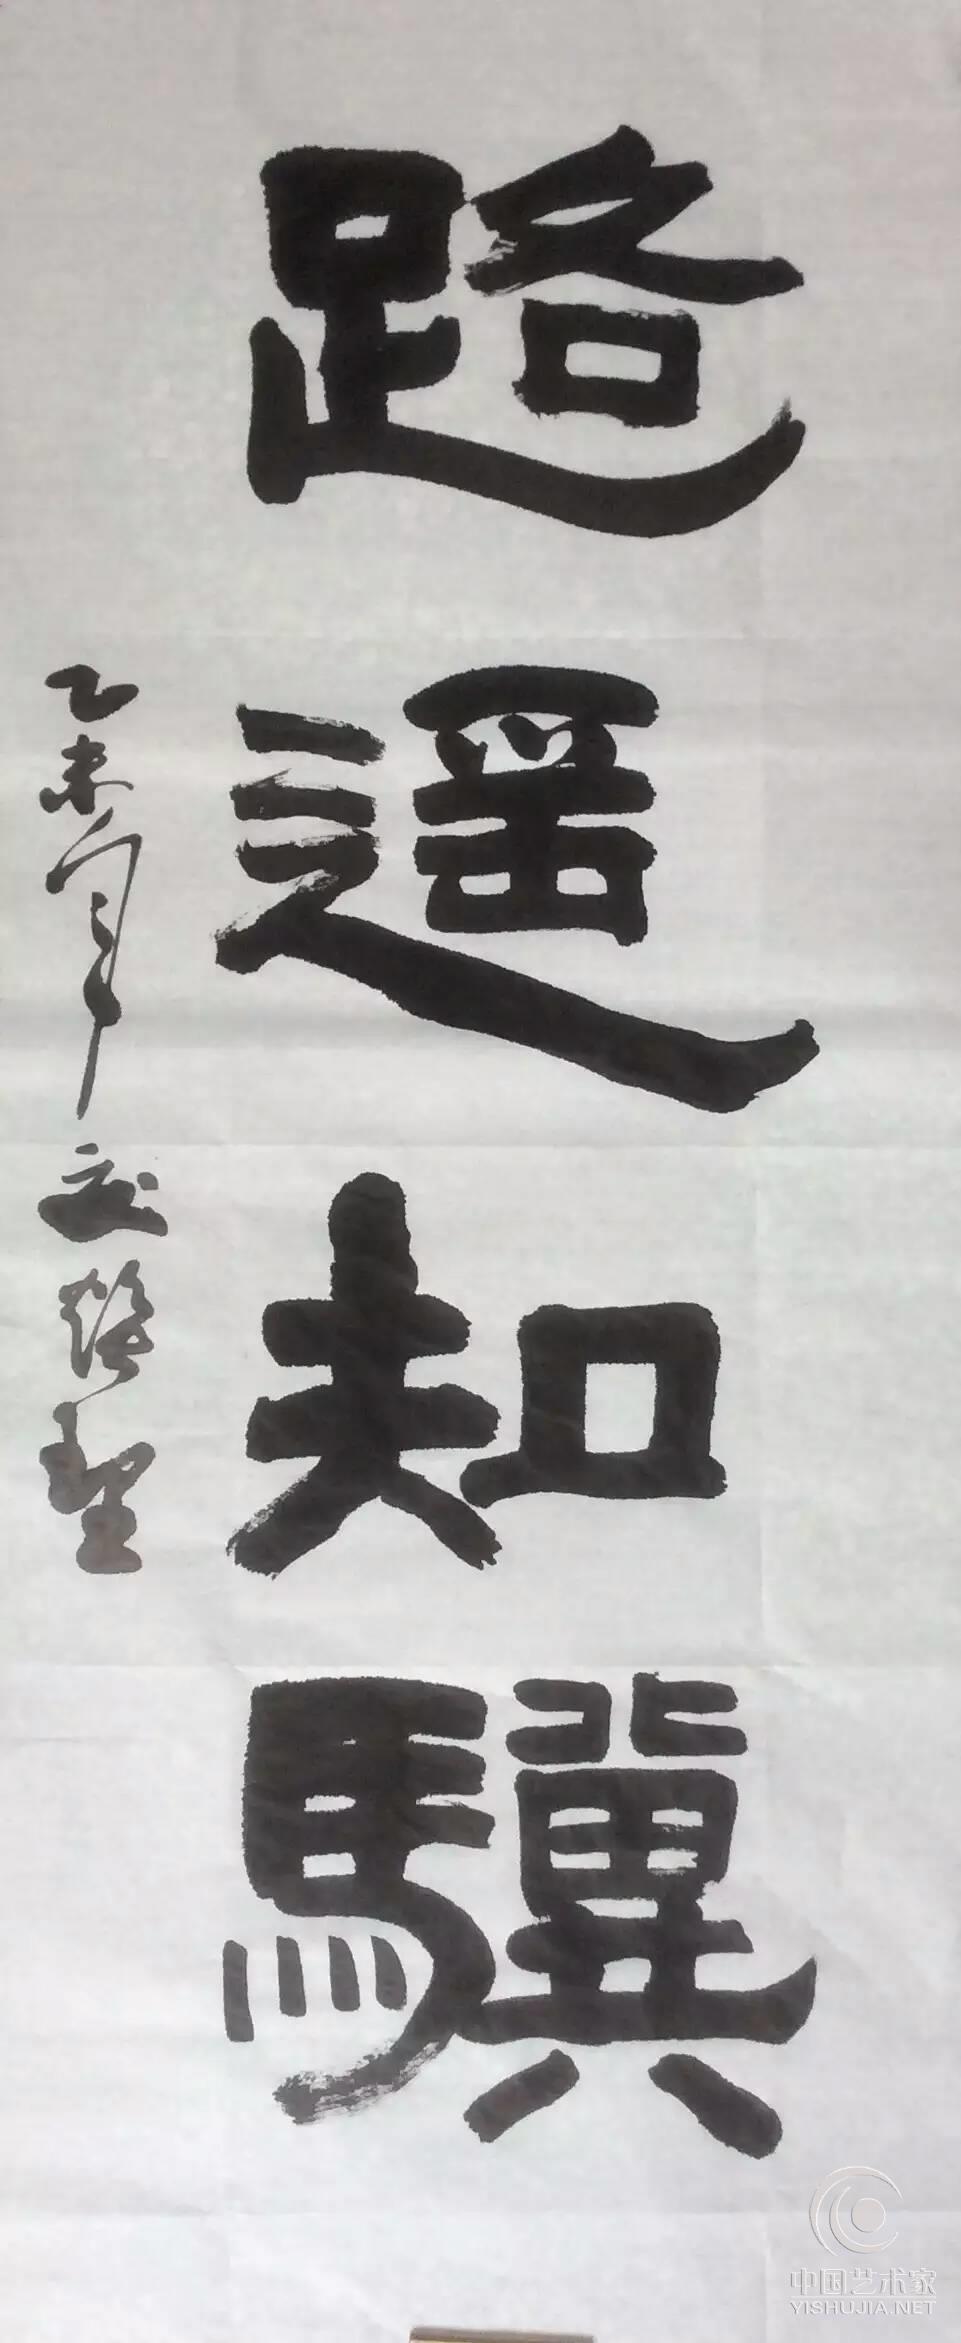 路遥知驥
乙未年
中国艺术家
YISHUJIA.NET